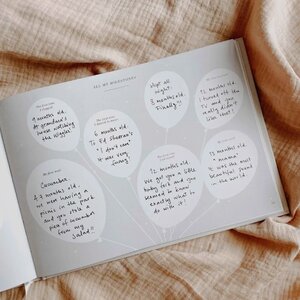 ALL MY MILESTONES
9 months old.
At grandma's
house watching
the Wiggles
6 months old.
To Ed Sheeran's
"I don't care"
It was very
funny.
slept all
night!
8 months old.
Finally!!
12 months old.
I turned off the
TV and you
really didn't
like that!
Cucumber.
4.5 months old.
We were having a
picnic in the park
and you stole a
piece of cucumber
from my
salad!
12 months old.
We got you a little
baby fork and you
seemed to know
exactly what to
do with it!
13 months old.
"mama"
It was the most
beautiful sound
in the world